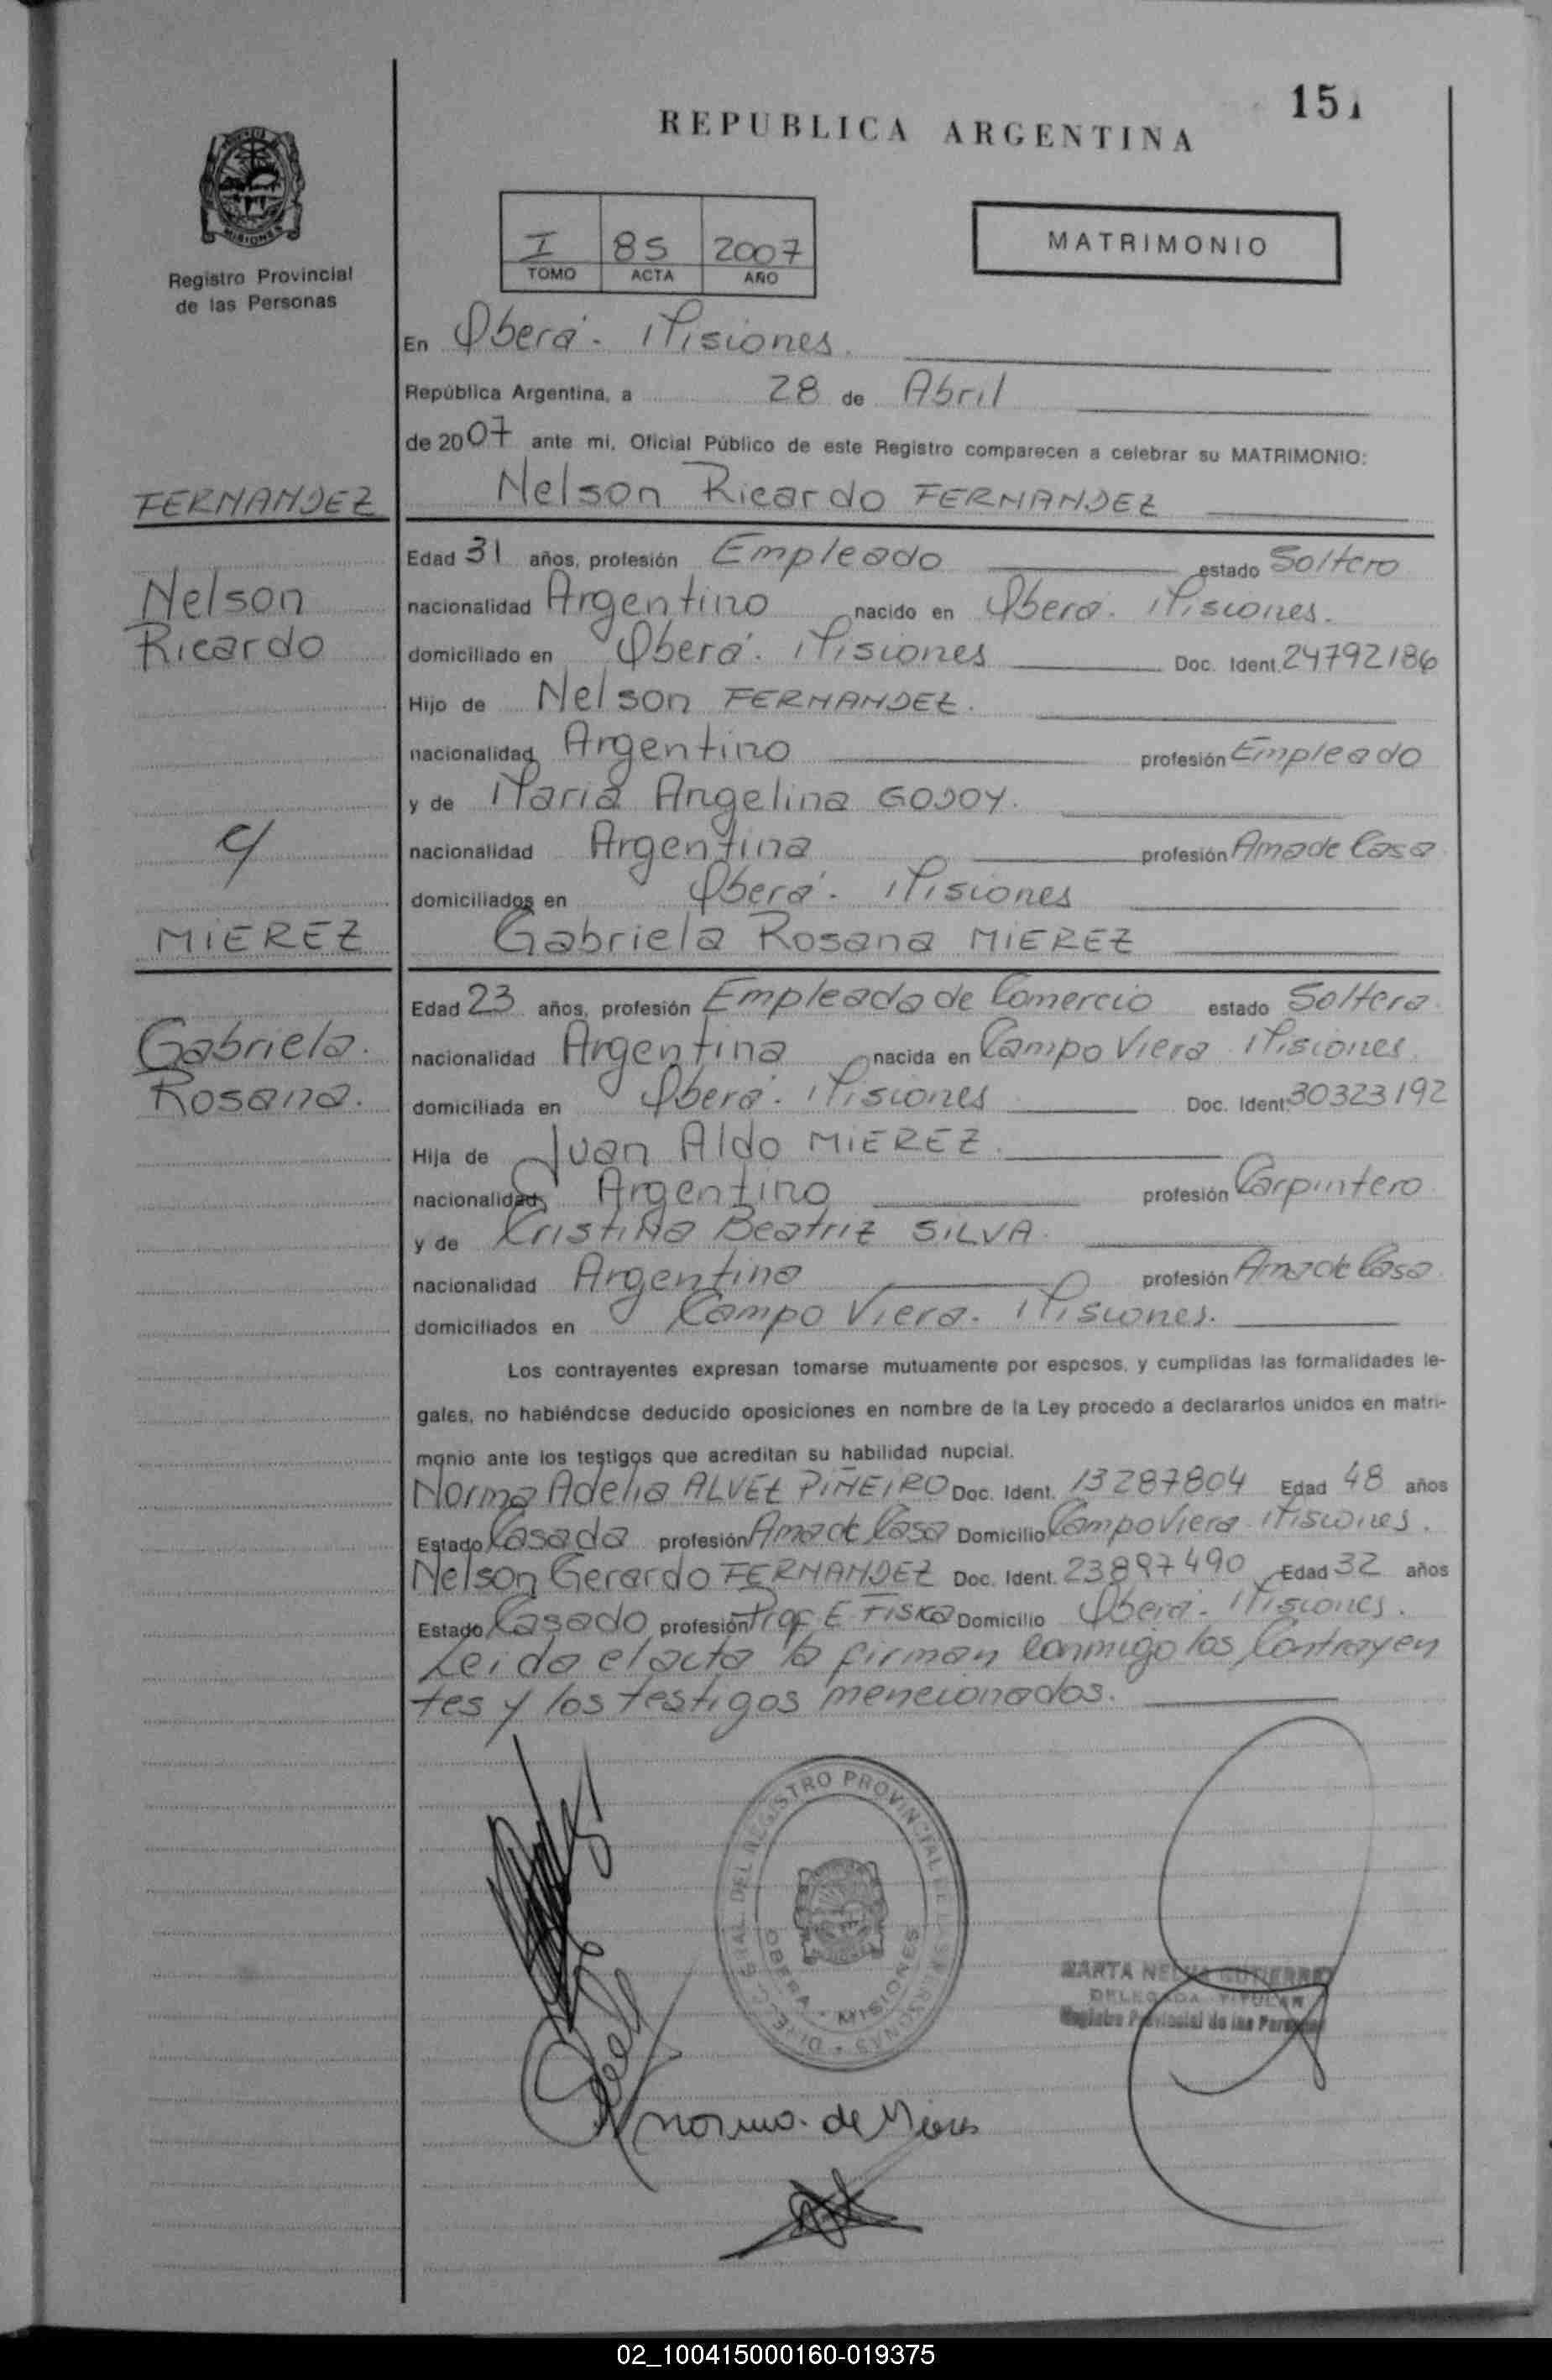 151
REPUBLICA ARGENTINA
MISIONES
Registro Provincial
de las Personas
I 85 2007
TOMO ACTA AÑO
MATRIMONIO
En Oberá - Misiones.
República Argentina, a 28 de Abril
de 2007 ante mi, Oficial Público de este Registro comparecen a celebrar su MATRIMONIO:
FERNANDEZ Nelson Ricardo FERNANDEZ
Edad 31 años, profesión Empleado estado Soltero
Nelson nacionalidad Argentino nacido en Oberá - Misiones.
Ricardo domiciliado en Oberá - Misiones Doc. Ident. 24792186
Hijo de Nelson FERNANDEZ.
nacionalidad Argentino profesión Empleado
y de Maria Angelina GODOY.
c/ nacionalidad Argentina profesión Ama de Casa
domiciliados en Oberá - Misiones
MIEREZ Gabriela Rosana MIEREZ
Edad 23 años, profesión Empleada de Comercio estado Soltera
Gabriela. nacionalidad Argentina nacida en Campo Viera Misiones
Rosana. domiciliada en Oberá - Misiones Doc. Ident. 30323192
Hija de Juan Aldo MIEREZ.
nacionalidad Argentino profesión Carpintero
y de Cristina Beatriz SILVA
nacionalidad Argentina profesión Ama de Casa
domiciliados en Campo Viera - Misiones.
Los contrayentes expresan tomarse mutuamente por esposos, y cumplidas las formalidades le-
gales, no habiéndose deducido oposiciones en nombre de la Ley procedo a declararlos unidos en matri-
monio ante los testigos que acreditan su habilidad nupcial.
Norma Adelia ALVEZ PIÑEIRO Doc. Ident. 13287804 Edad 48 años
Estado Casada profesión Ama de Casa Domicilio Campo Viera - Misiones.
Nelson Gerardo FERNANDEZ Doc. Ident. 23897490 Edad 32 años
Estado Casado profesión Prof E. Fiska Domicilio Oberá - Misiones.
Leida el acta la firman conmigo los Contrayen
tes y los testigos menecionados.
DIRECC. GRAL. DEL REGISTRO PROVINCIAL DE LAS PERSONAS
OBERA - MISIONES
MARTA NELIDA GUTIERREZ
DELEGADA TITULAR
Registro Provincial de las Personas
norma de
02_100415000160-019375